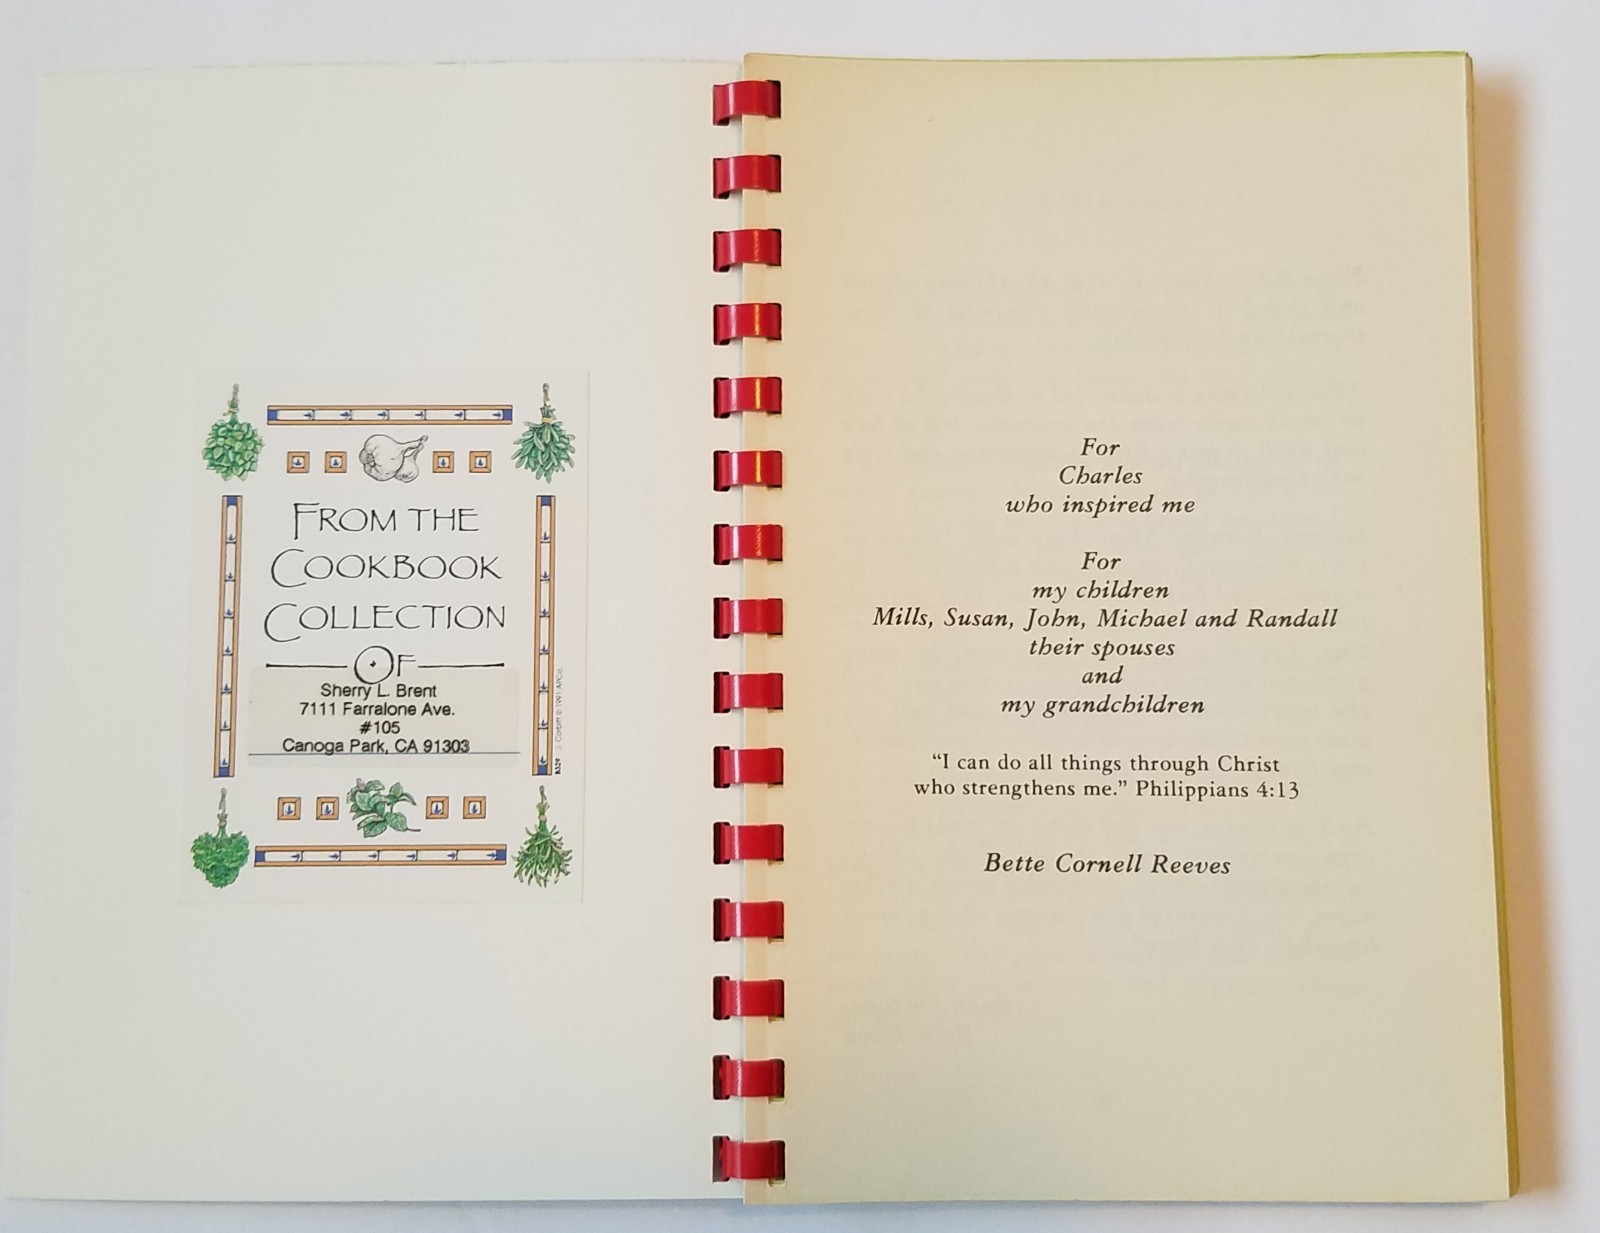 FROM THE
COOKBOOK
COLLECTION
OF
Sherry L. Brent
7111 Farralone Ave.
#105
Canoga Park, CA 91303
J. Corbitt © 1991 APCo.
B329
For
Charles
who inspired me
For
my children
Mills, Susan, John, Michael and Randall
their spouses
and
my grandchildren
“I can do all things through Christ
who strengthens me.” Philippians 4:13
Bette Cornell Reeves